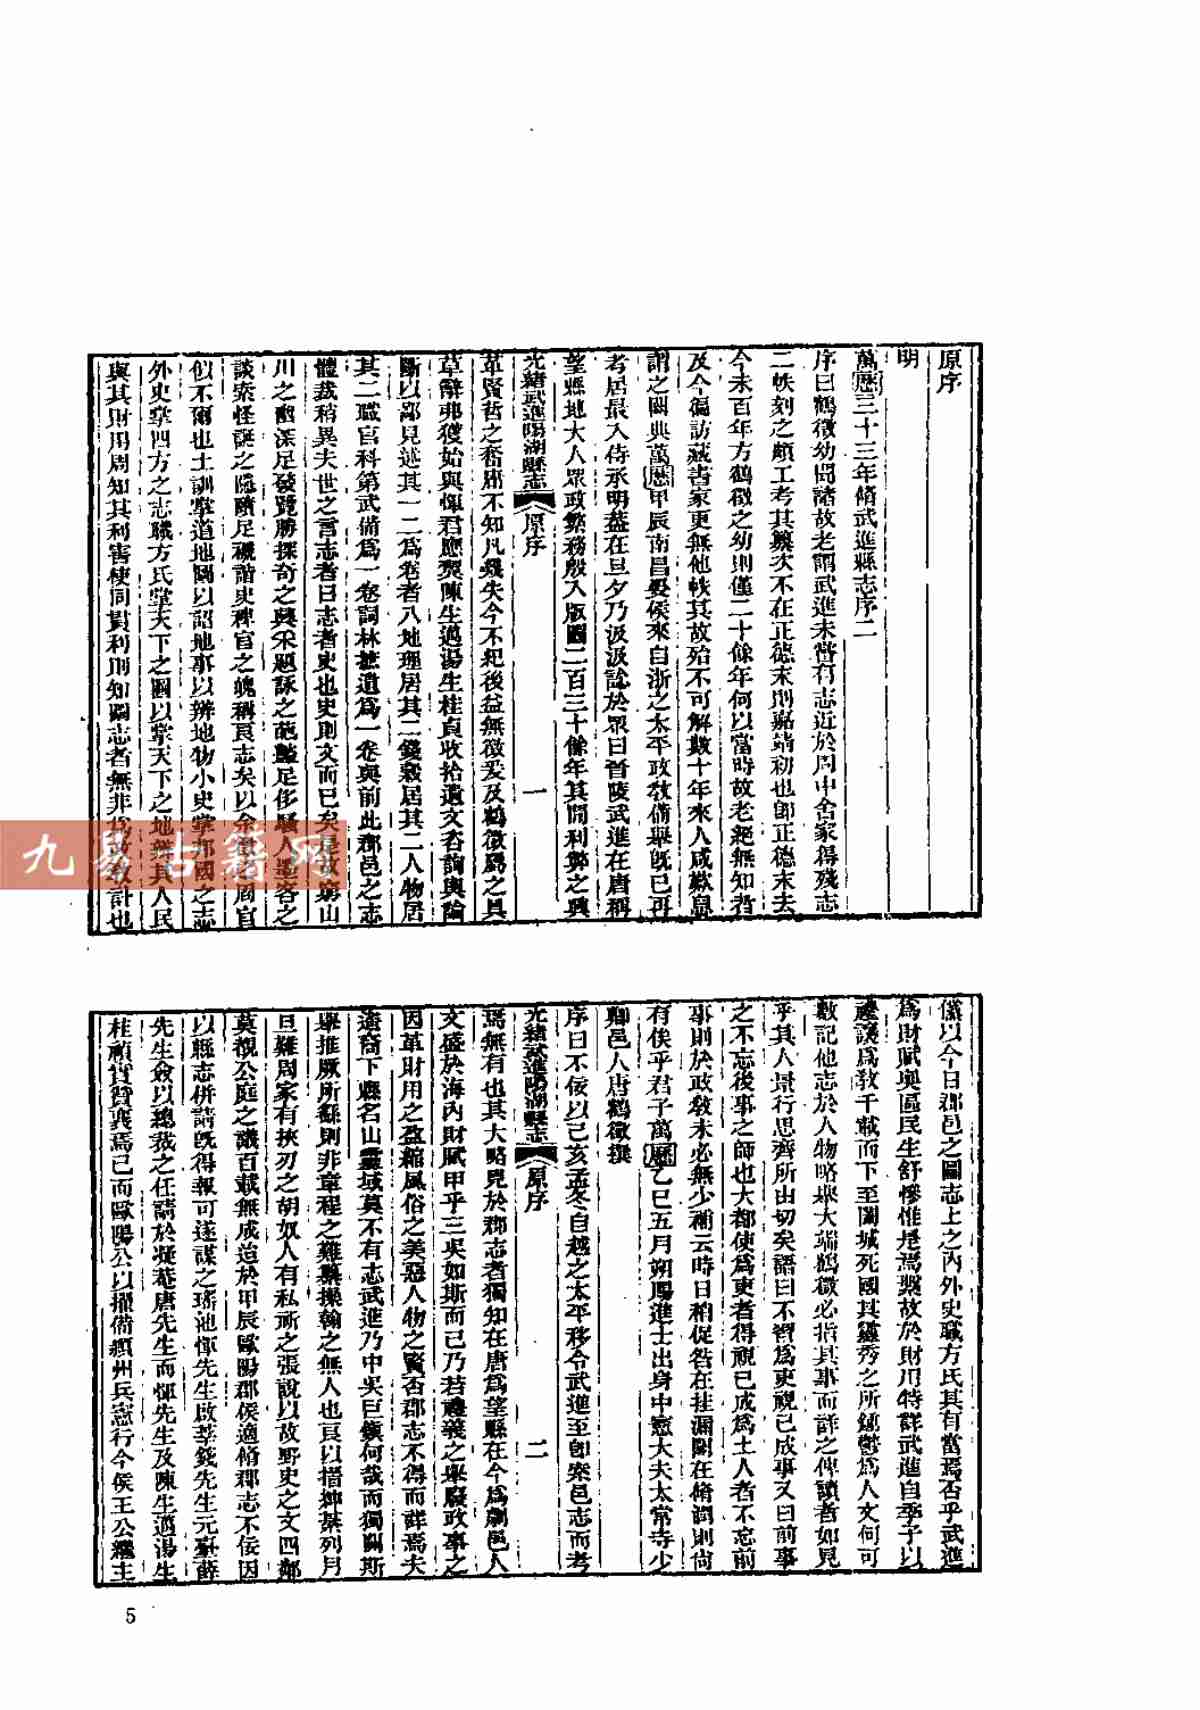 原序
明
萬歷三十三年脩武進縣志序二
序曰鶴徵幼聞諸故老謂武進未嘗有志近於周中舍家得殘志
二帙刻之頗工考其纂次不在正德末則嘉靖初也卽正德末去
今未百年方鶴徵之幼則僅二十餘年何以當時故老絕無知者
及今徧訪藏書家更無他帙其故殆不可解數十年來人咸歎息
謂之闕典萬歷甲辰南昌晏侯來自浙之太平政敎脩舉旣已再
考居最入侍承明葢在旦夕乃汲汲諗於眾曰晉陵武進在唐稱
望縣地大人眾政繁務殷入版圖二百三十餘年其間利弊之興
光緒武進陽湖縣志 原序 一
革賢哲之奮庸不知凡幾失今不紀後益無徵爰及鶴徵爲之具
草辭弗獲始與惲君應翼陳生遇湯生桂貞收拾遺文咨詢輿論
斷以鄙見述其一二爲卷者八地理居其二錢穀居其二人物居
其二職官科第武備爲一卷詞林摭遺爲一卷與前此郡邑之志
體裁稍異夫世之言志者曰志者史也史則文而已矣是故窮山
川之幽深足發覽勝探奇之興采題詠之葩豔足侈騷人墨客之
談索怪誕之隱賾足襯諧史稗官之
似不爾也土訓掌道地圖以詔地事以辨地物小史掌邦國之志
外史掌四方之志職方氏掌天下之圖以掌天下之地辨其人民
與其財用周知其利害使同貫利則知圖志者無非爲政敎計也
儀以今日郡邑之圖志上之內外史職方氏其有當焉否乎武進
爲財賦奧區民生舒慘惟是焉繫故於財用特詳武進自季子以
禮讓爲敎千載而下至闔城死國其靈秀之所鍾鬱爲人文何可
數記他志於人物略舉大端鶴徵必指其事而詳之俾讀者如見
乎其人景行思齊所由切矣語曰不習爲吏視已成事又曰前事
之不忘後事之師也大都使爲吏者得視已成爲士人者不忘前
事則於政敎未必無少補云時日稍促咎在挂漏闕在脩潤則尙
有俟乎君子萬歷乙巳五月朔賜進士出身中憲大夫太常寺少
卿邑人唐鶴徵撰
序曰不佞以己亥孟冬自越之太平移令武進至卽索邑志而考
焉無有也其大略見於郡志者獨知在唐爲望縣在今爲劇邑人
光緒武進陽湖縣志 原序 二
文盛於海內財賦甲乎三吳如斯而已乃若禮義之舉廢政事之
因革財用之盈縮風俗之美惡人物之賢否郡志不得而詳焉夫
遐裔下縣名山靈域莫不有志武進乃中吳巨鎭何哉而獨闕斯
舉推厥所繇則非章程之難纂操翰之無人也良以搢紳棊列月
旦難周家有挾刃之胡奴人有私祈之張說以故野史之文四鄰
莫覩公庭之議百載無成迨於甲辰歐陽郡侯適脩郡志不佞因
以縣志併請旣得報可遂謀之瑤池惲先生啟莘錢先生元臺薛
先生僉以總裁之任請於凝菴唐先生而惲先生及陳生遇湯生
桂禎實贊襄焉已而歐陽公以擢備潁州兵憲行今侯王公繼主
5
九易古籍网